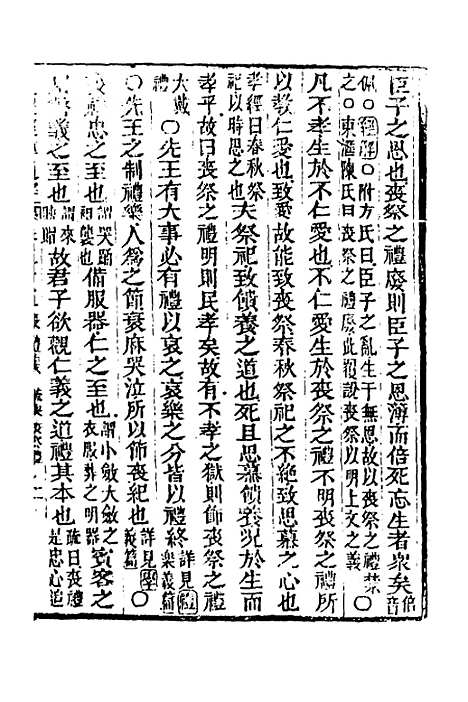 臣子之恩也喪祭之禮廢則臣子之恩薄而倍死忘生者衆矣倍音
佩○經解○附方氏曰臣子之亂生于無恩故以喪祭之禮禁
之○東匯陳氏曰喪祭之禮廢此覆說喪祭以明上文之義
凡不孝生於不仁愛也不仁愛生於喪祭之禮不明喪祭之禮所
以教仁愛也致愛故能致喪祭春秋祭祀之不絶致思慕之心也
孝經曰春秋祭
祀以時思之也夫祭祀致饋養之道也死且思慕饋養况於生而
孝乎故曰喪祭之禮明則民孝矣故有不孝之獄則飾喪祭之禮
大戴
禮○先王有大事必有禮以哀之哀樂之分皆以禮終詳見
樂義篇
○先王之制禮樂人爲之節衰麻哭泣所以飾喪紀也詳見
義篇○
忠之至也謂哭踊
也備服器仁之至也謂小斂大斂之
衣服葬之明器賓客之
義之至也謂來
賵故君子欲觀仁義之道禮其本也疏曰喪禮
是忠心追